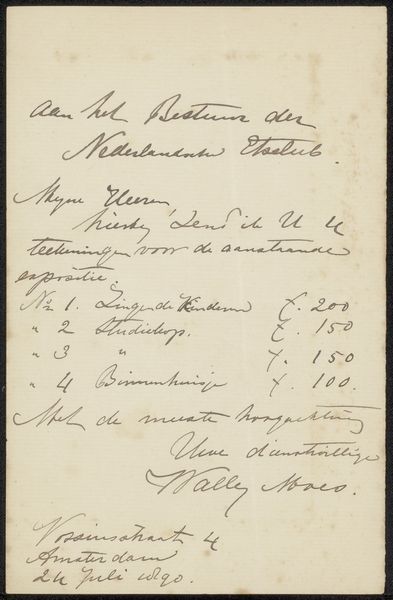 Aan het Bestuur der
Nederlandsche Etsclub.
Mijne Heeren
hierbij zend ik U 4
teekeningen voor de aanstaande
expositie.
No 1. Zingende Kinderen f. 200
" 2 Studiekop. f. 150
" 3 " f. 150
" 4 Binnenhuisje f. 100.
Met de meeste hoogachting
Uwe dienstwillige
Wally Moes.
Vossiusstraat 4
Amsterdam
24 Juli 1890.